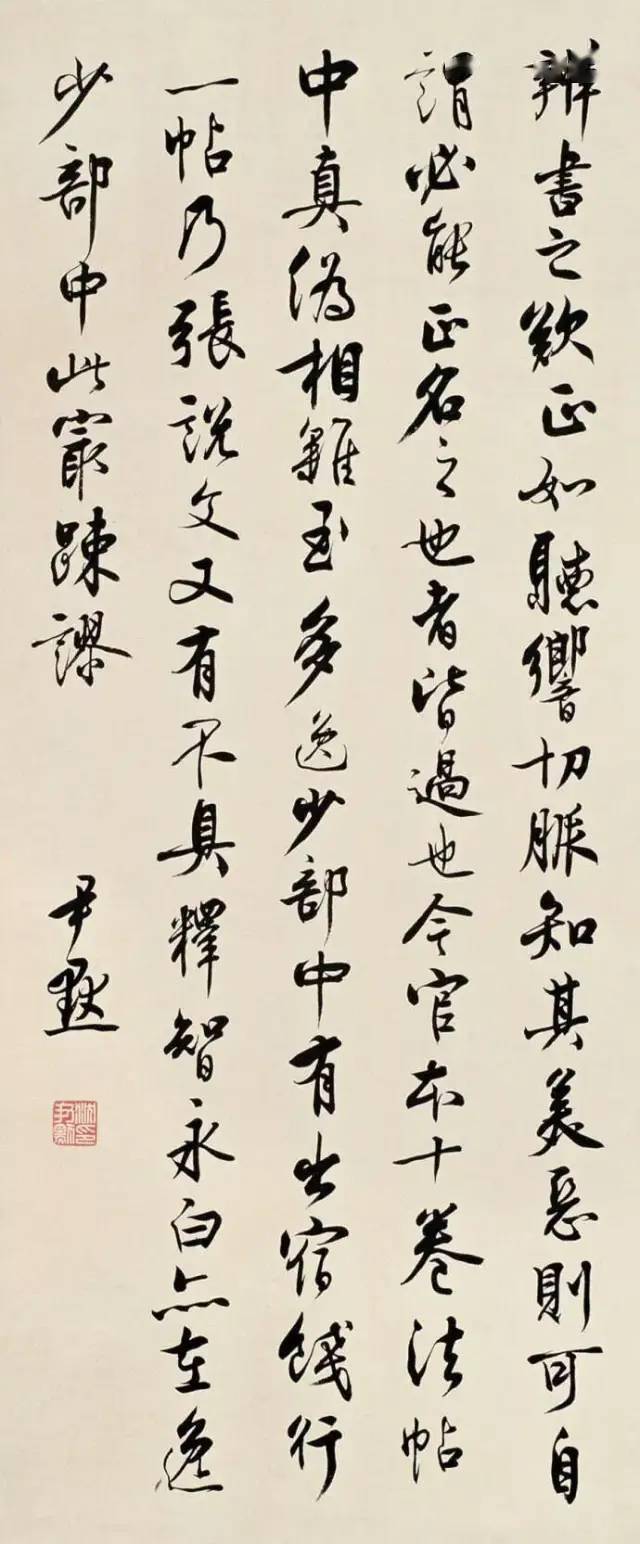 辨書之欵正如聽響切脈知其美惡則可自
謂必能正名之也者皆過也今官本十卷法帖
中真偽相雜至多逸少部中有出宿餞行
一帖乃張説文又有不具釋智永白亦在逸
少部中此㝡疎謬
尹默
沈尹默印